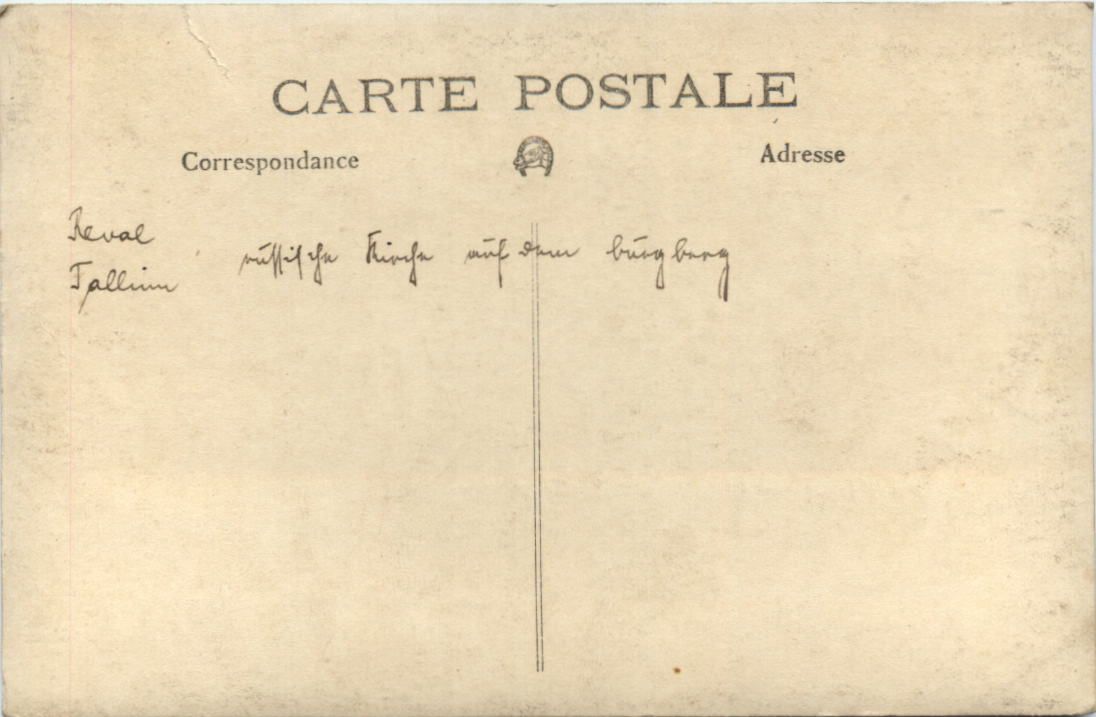 CARTE POSTALE
Correspondance
Adresse
Reval
Tallinn
russische Kirche auf dem burgberg